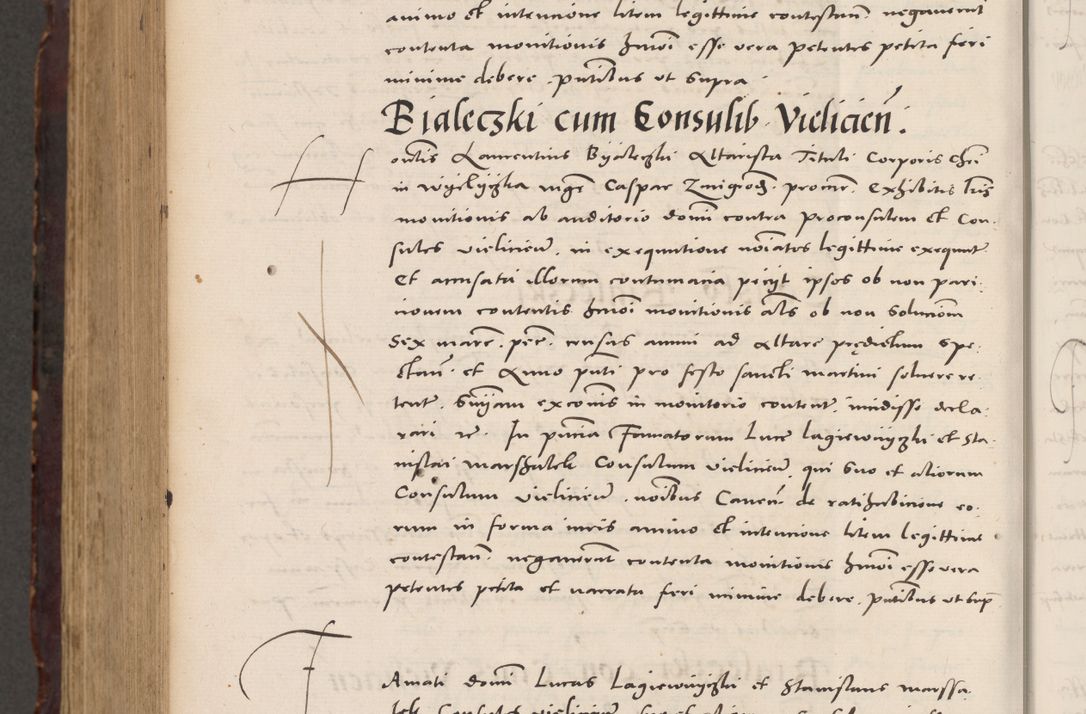 animo et intencione litem legittime contestan̄ negaverūt
contenta monitionis hmōi esse vera petentes petita fieri
minime debere. pn̄tibus ut supra
Bialeczki cum Consulib. Vielicien̄.
Honblis Laurentius Byaleczki Altarista Tituli Corporis Chri
in Wyelyczka in gn̄e Caspar Zmigrod. procur. Exhibitis lris
monitionis ab auditorio domi contra Proconsulem et Con
sules vieliciens, in exequutione noīatos legittime exequut
Et accusata illorum contumacia peciyt ipsos ob non pari
cionem contentis hmōi monitionis als ob non Solucionm
Sex marc. pec. census annui ad Altare prędictum spe
ctan. et Anno pn̄ti pro festo sancti martini solvere re
tent. Snīam excōnis in monitorio content. incidisse decla
rari rc. In pn̄cia Famatorum Luce Lagiewnyczki et Sta
nislai marszalek Consulum vieliciens, qui Suo et aliorum
Consulum vieliciens. noībus Caven. de ratihabicione eo
rum in forma iuris animo et intencione litem legittime
contestan. negaverunt contenta monitionis hmōi esse vera
petentes petita et narrata fieri minime debere. pn̄tibus ut sup
Famati domi Lucas Lagiewnyczki et Stanislaus marssa
lek Consules vieliciens